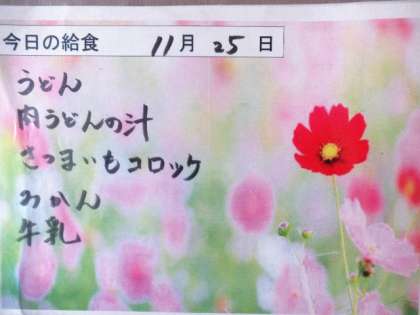 今日の給食 11月 25日
うどん
肉うどんの汁
さつまいもコロッケ
みかん
牛乳